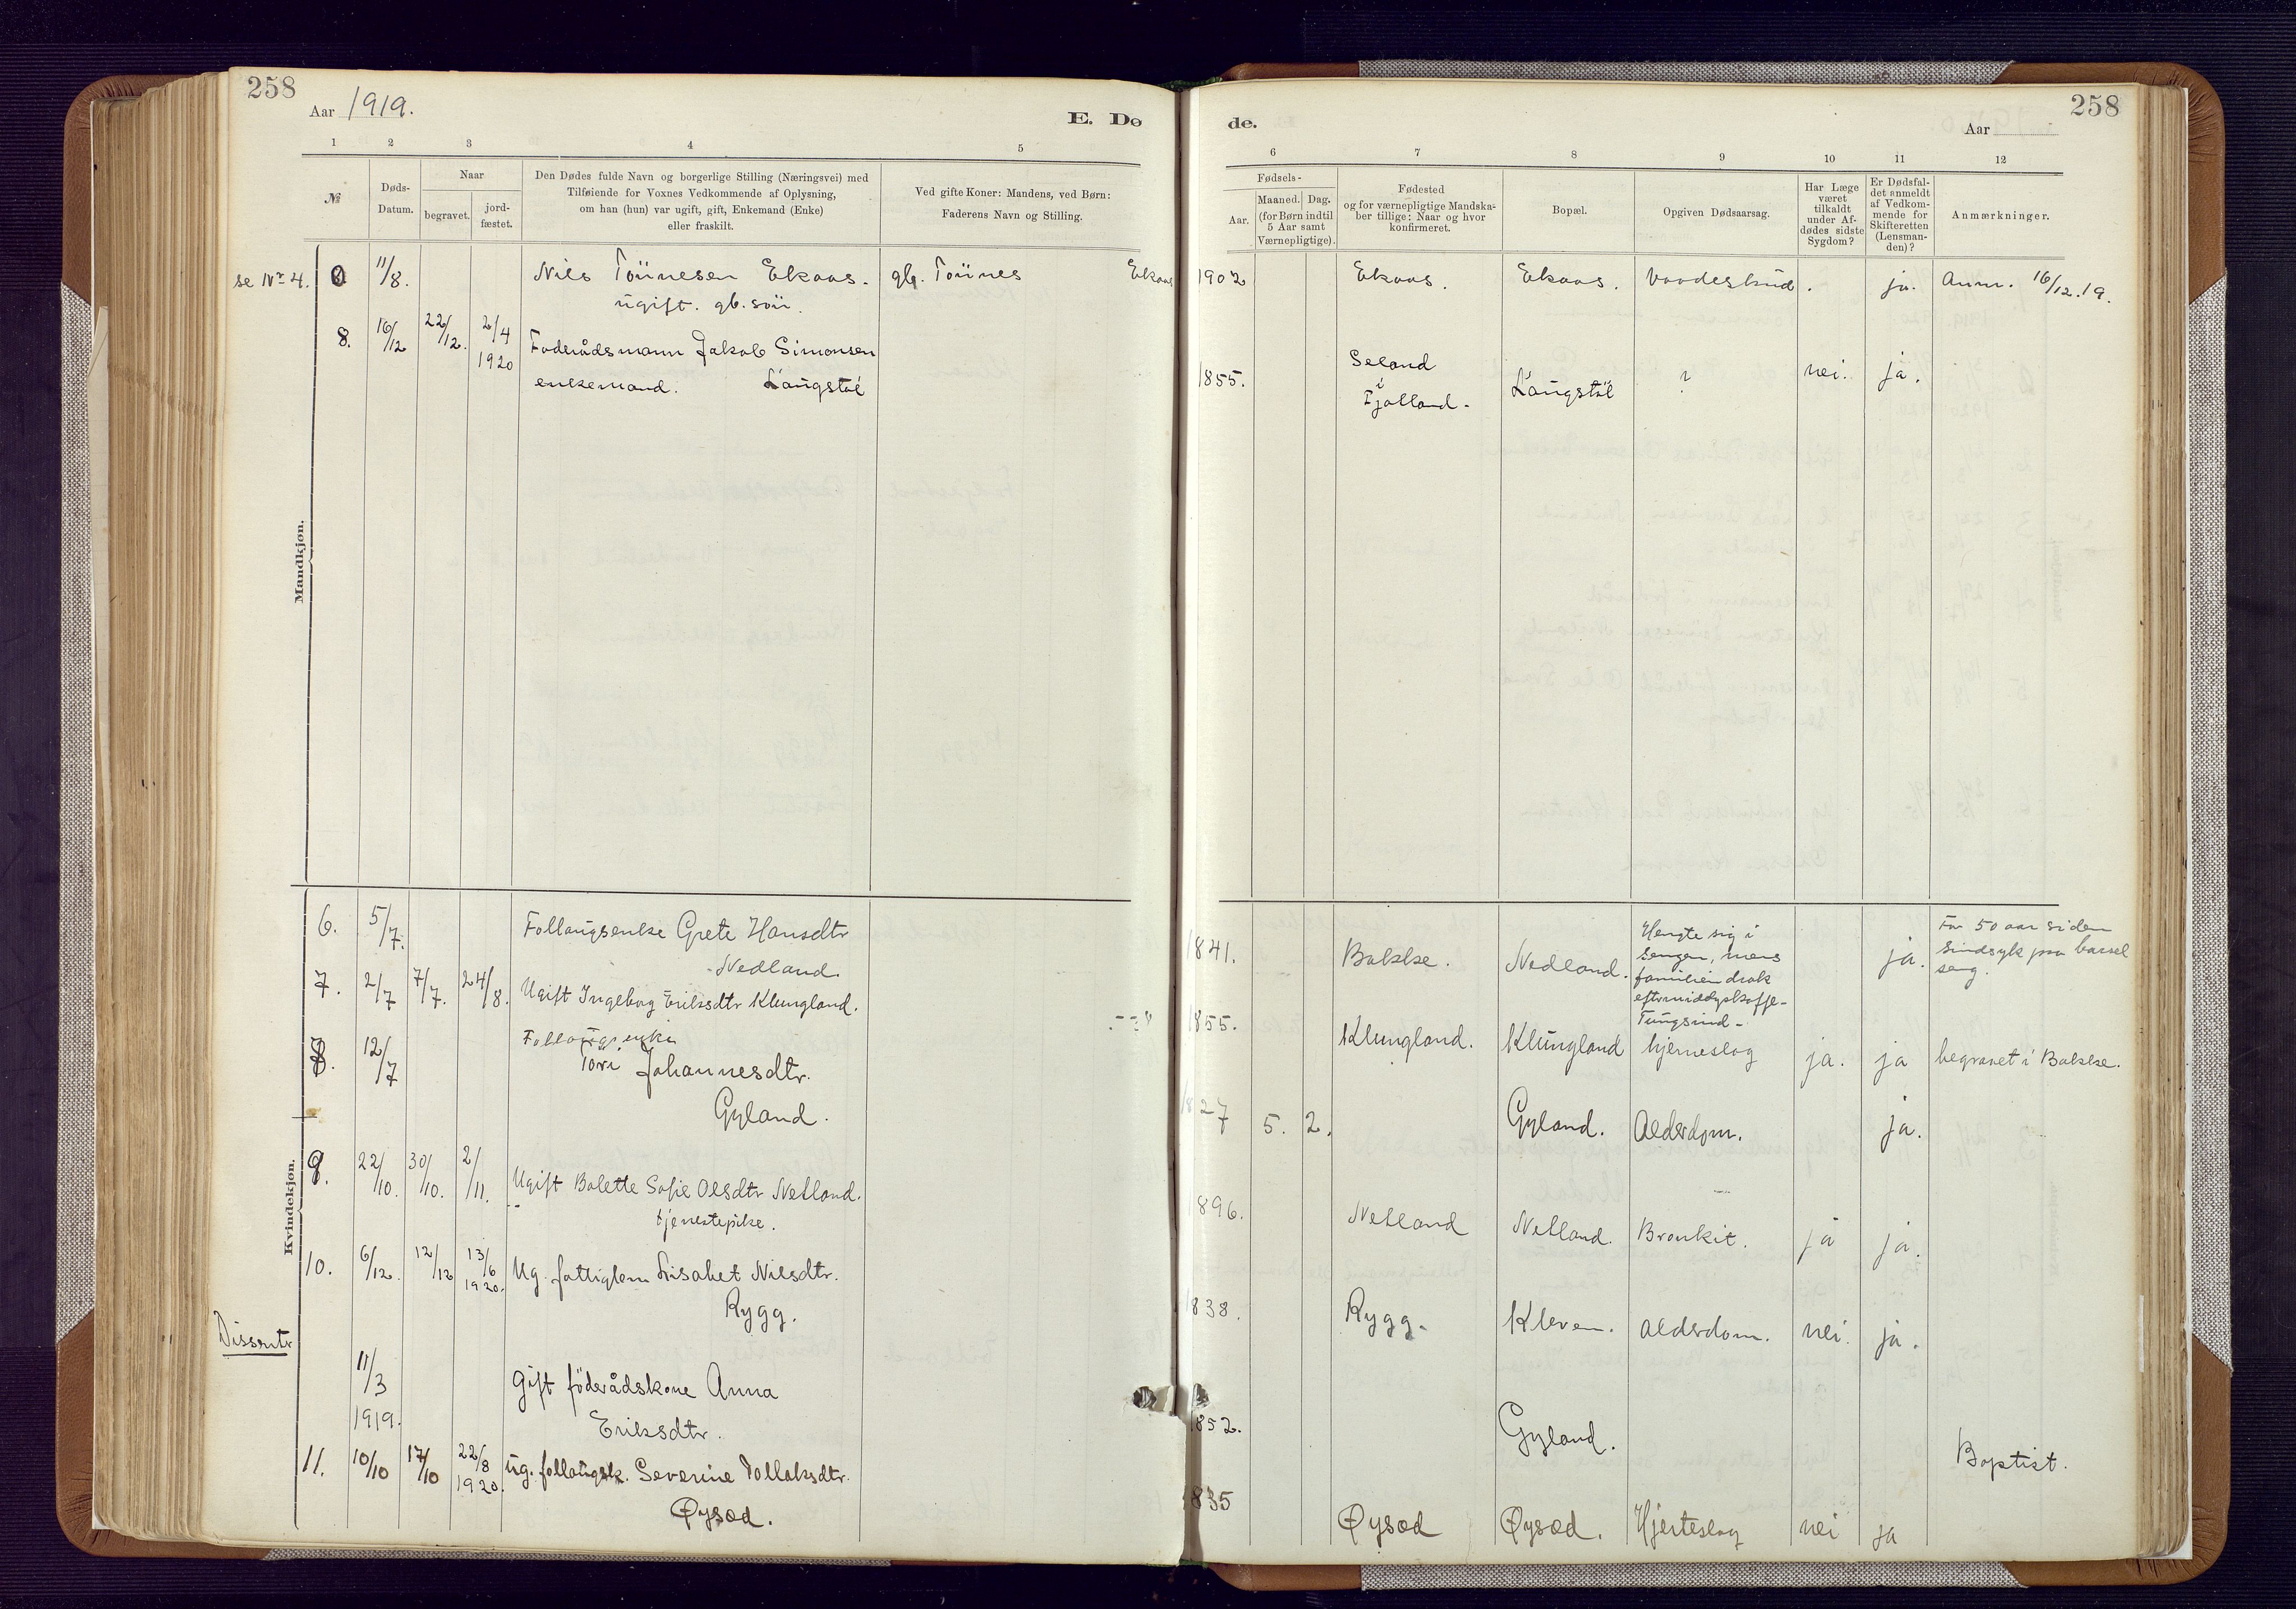 258
Aar 1919.
E. Dø
1 2 3 4 5
№
Døds-
Datum.
Naar
begravet.
jord-
fæstet.
Den Dødes fulde Navn og borgerlige Stilling (Næringsvei) med
Tilføiende for Voxnes Vedkommende af Oplysning,
om han (hun) var ugift, gift, Enkemand (Enke)
eller fraskilt.
Ved gifte Koner: Mandens, ved Børn:
Faderens Navn og Stilling.
Mandkjøn.
se Nr 4. 0 11/8. Nils Tönnesen Ekaas. gb. Tönnes Ekaas
ugift. gb. sön.
8. 16/12 22/12. 2/4 1920 Foderådsmann Jakob Simonsen
enkemand. Langstöl
Kvindekjøn.
6. 5/7. Follaugsenke Grete Hansdtr
Nedland.
7. 2/7 7/7. 24/8. Ugift Ingebog Eriksdtr Klungland.
8. 12/7 Follaugsenke
Töri Johannesdtr.
Gyland.
9. 22/10. 30/10. 2/11. Ugift Bolette Sofie Olsdtr Netland.
tjenestepike.
10. 6/12. 12/12 13/6 1920. Ug. fattiglem Lisabet Nilsdtr.
Rygg.
Dissentr
11/3 1919. Gift föderådskone Anna
Eriksdtr.
11. 10/10 17/10 22/8 1920. ug. follaugsk. Severine Tollaksdtr.
Øysæd.
de.
Aar
258
6 7 8 9 10 11 12
Fødsels-
Aar.
Maaned. Dag.
(for Børn indtil
5 Aar samt
Værnepligtige).
Fødested
og for værnepligtige Mandska-
ber tillige: Naar og hvor
konfirmeret.
Bopæl.
Opgiven Dødsaarsag.
Har Læge
været
tilkaldt
under Af-
dødes sidste
Sygdom?
Er Dødsfal-
det anmeldt
af Vedkom-
mende for
Skifteretten
(Lensman-
den)?
Anmærkninger.
1902 Ekaas. Ekaas. Vaadeskud. ja. Anm. 16/12.19.
1855. Seland
i
Fjotland. Langstöl ? nei. ja.
1841. Bakke. Nedland. Hengte sig i
sengen, mens
familien drak
eftermiddagskaffe-
Tungsind- ja. For 50 aar siden
sindsyk paa barsel
seng.
1855. Klungland. Klungland hjerneslag ja. ja begravet i Bakke.
1827 5. 2. Gyland. Alderdom. ja.
1896. Netland Netland. Bronkit. ja ja.
1838. Rygg. Kleven. Alderdom. nei. ja.
1852. Gyland. Baptist.
1835 Øysæd Øysæd. Hjerteslag nei ja